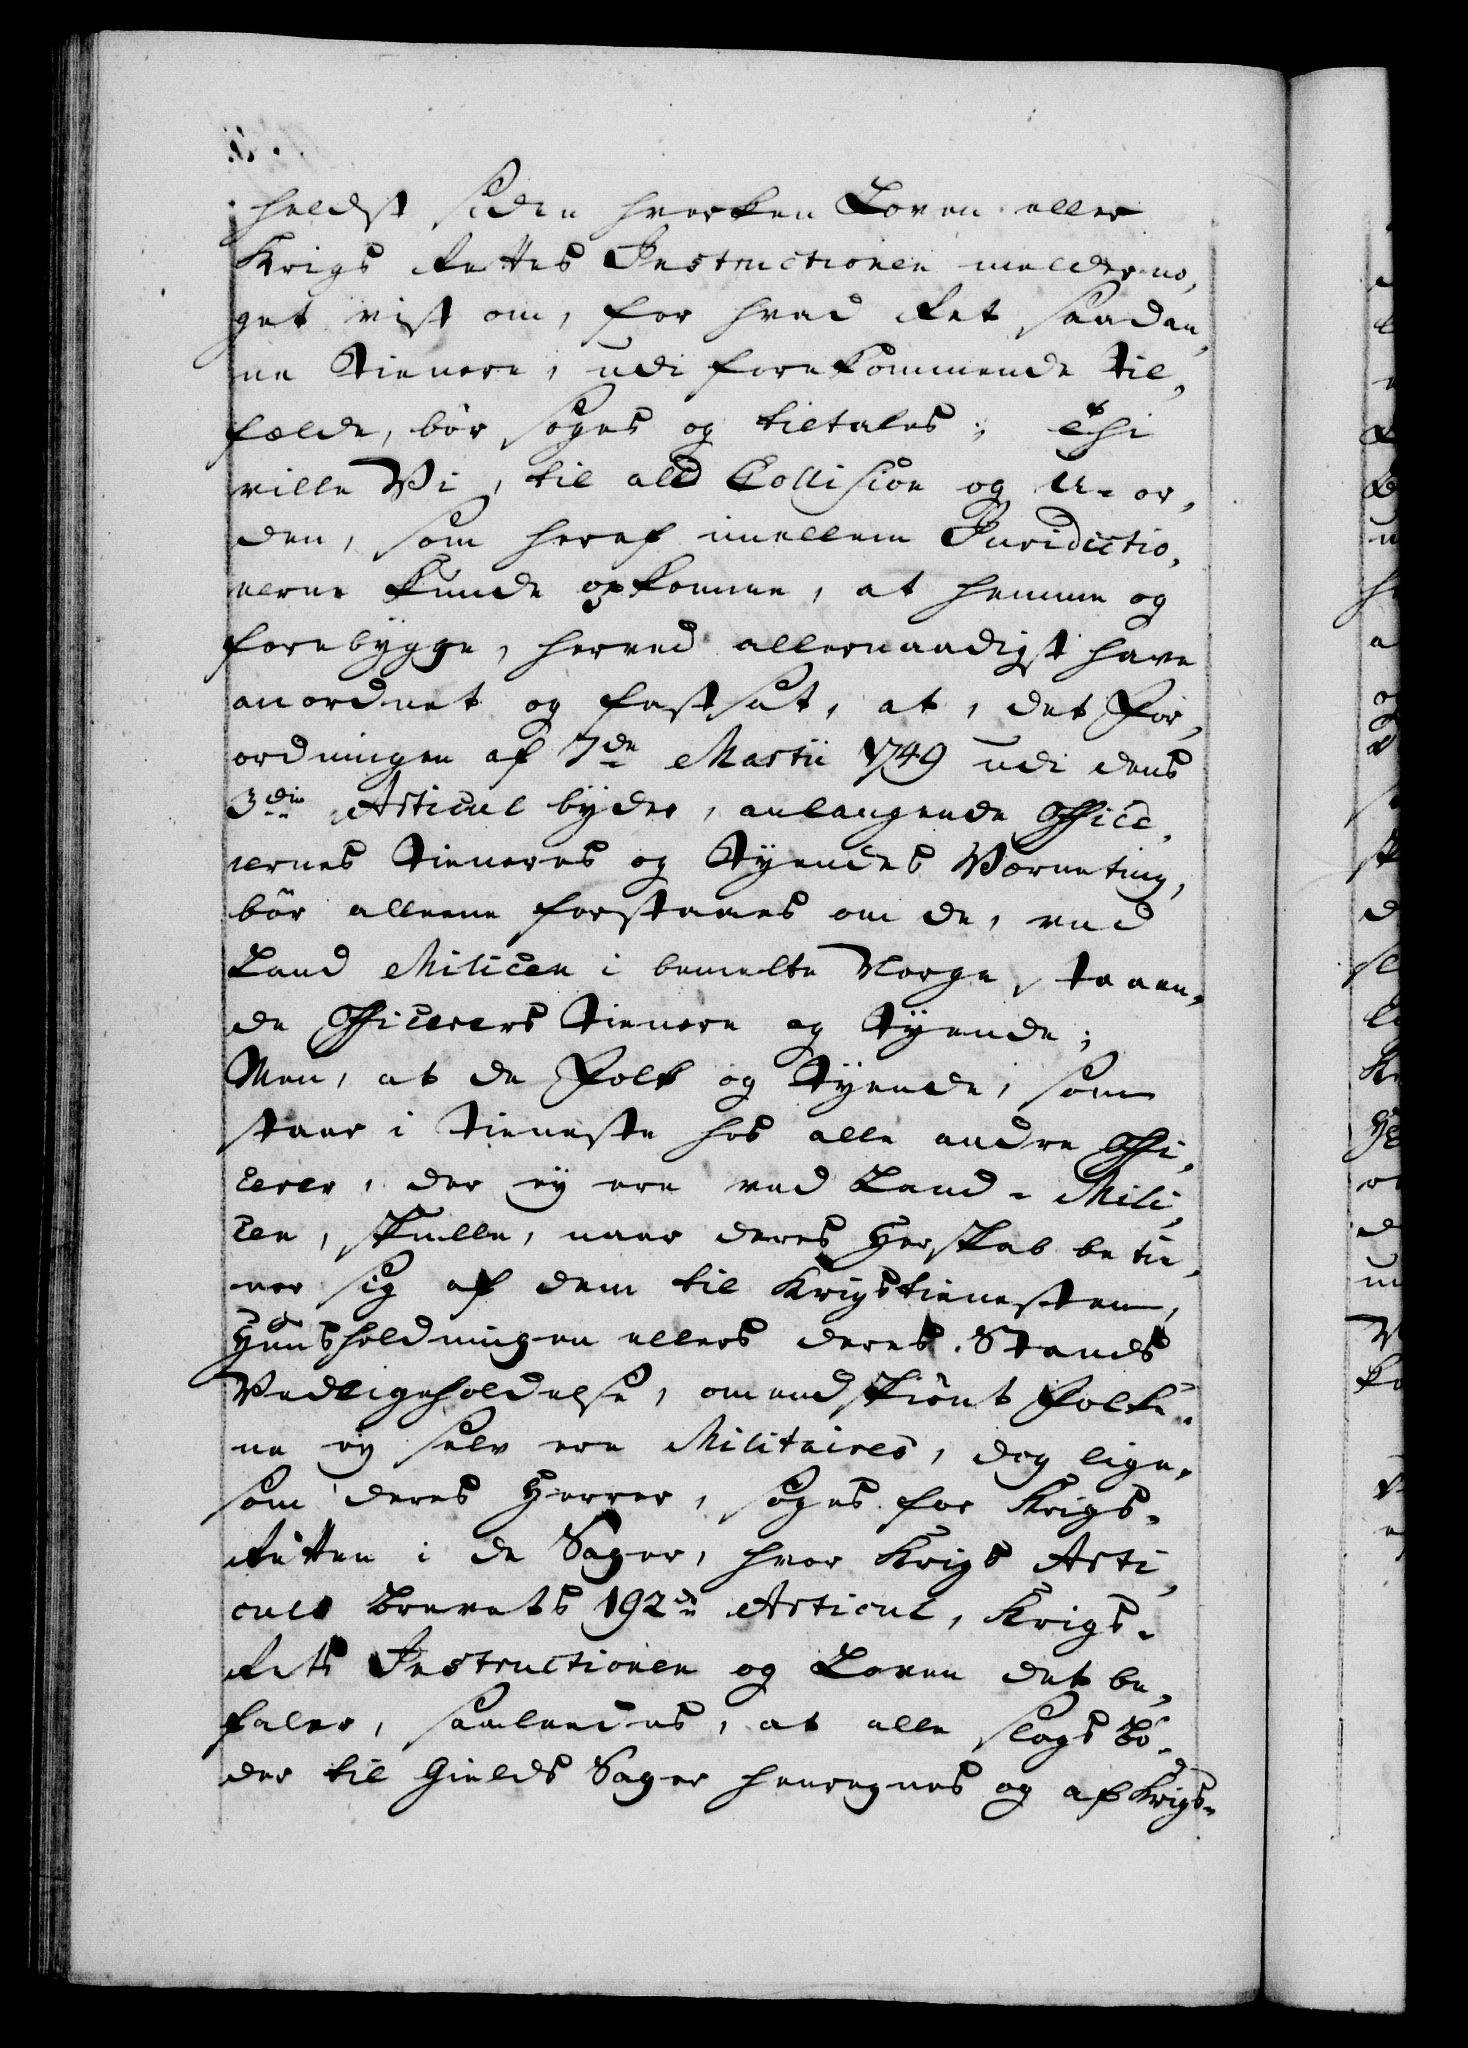 heldst siden hverken Loven eller
Krigs Rettes Instructionen melder no,
get vist om, for hvad Ret saadan,
ne Tienere, udi forekommende Til,
fælde, bør søges og tiltales; Thi
ville Vi, til ald Collision og U-or,
den, som heraf imellem Juridictio,
nerne kunde opkomme, at hemme og
forebygge, herved allernaadigst have
anordnet og fastsat, at, det For,
ordningen af 7de Martii 1749 udi dens
3die Articul byder, anlangende Offic,
rernes Tieneres og Tyendes Værneting,
bør alleene forstaaes om de, ved
Land Militien i bemelte Norge staaen,
de Officerers Tienere og Tyende;
Men, at de Folk og Tyende, som
staar i Tieneste hos alle andre Offi,
cerer, der ey ere ved Land-Mili,
cen, skulle, naar deres Herskab betie,
ner sig af dem til Krigstienesten,
Huusholdningen ellers deres Stands
Vedligeholdelse, omendskiønt Folke,
ne ey selv ere Militaires, dog lige,
som deres Herrer, søges for Krigs-
Retten i de Sager, hvor Krigs Arti,
culs Brevets 192de Articul, Krigs-
Rets Instructionen og Loven det be,
faler, saaledes, at alle slags Bø-
der til Gields Sager henregnes og af Krigs-